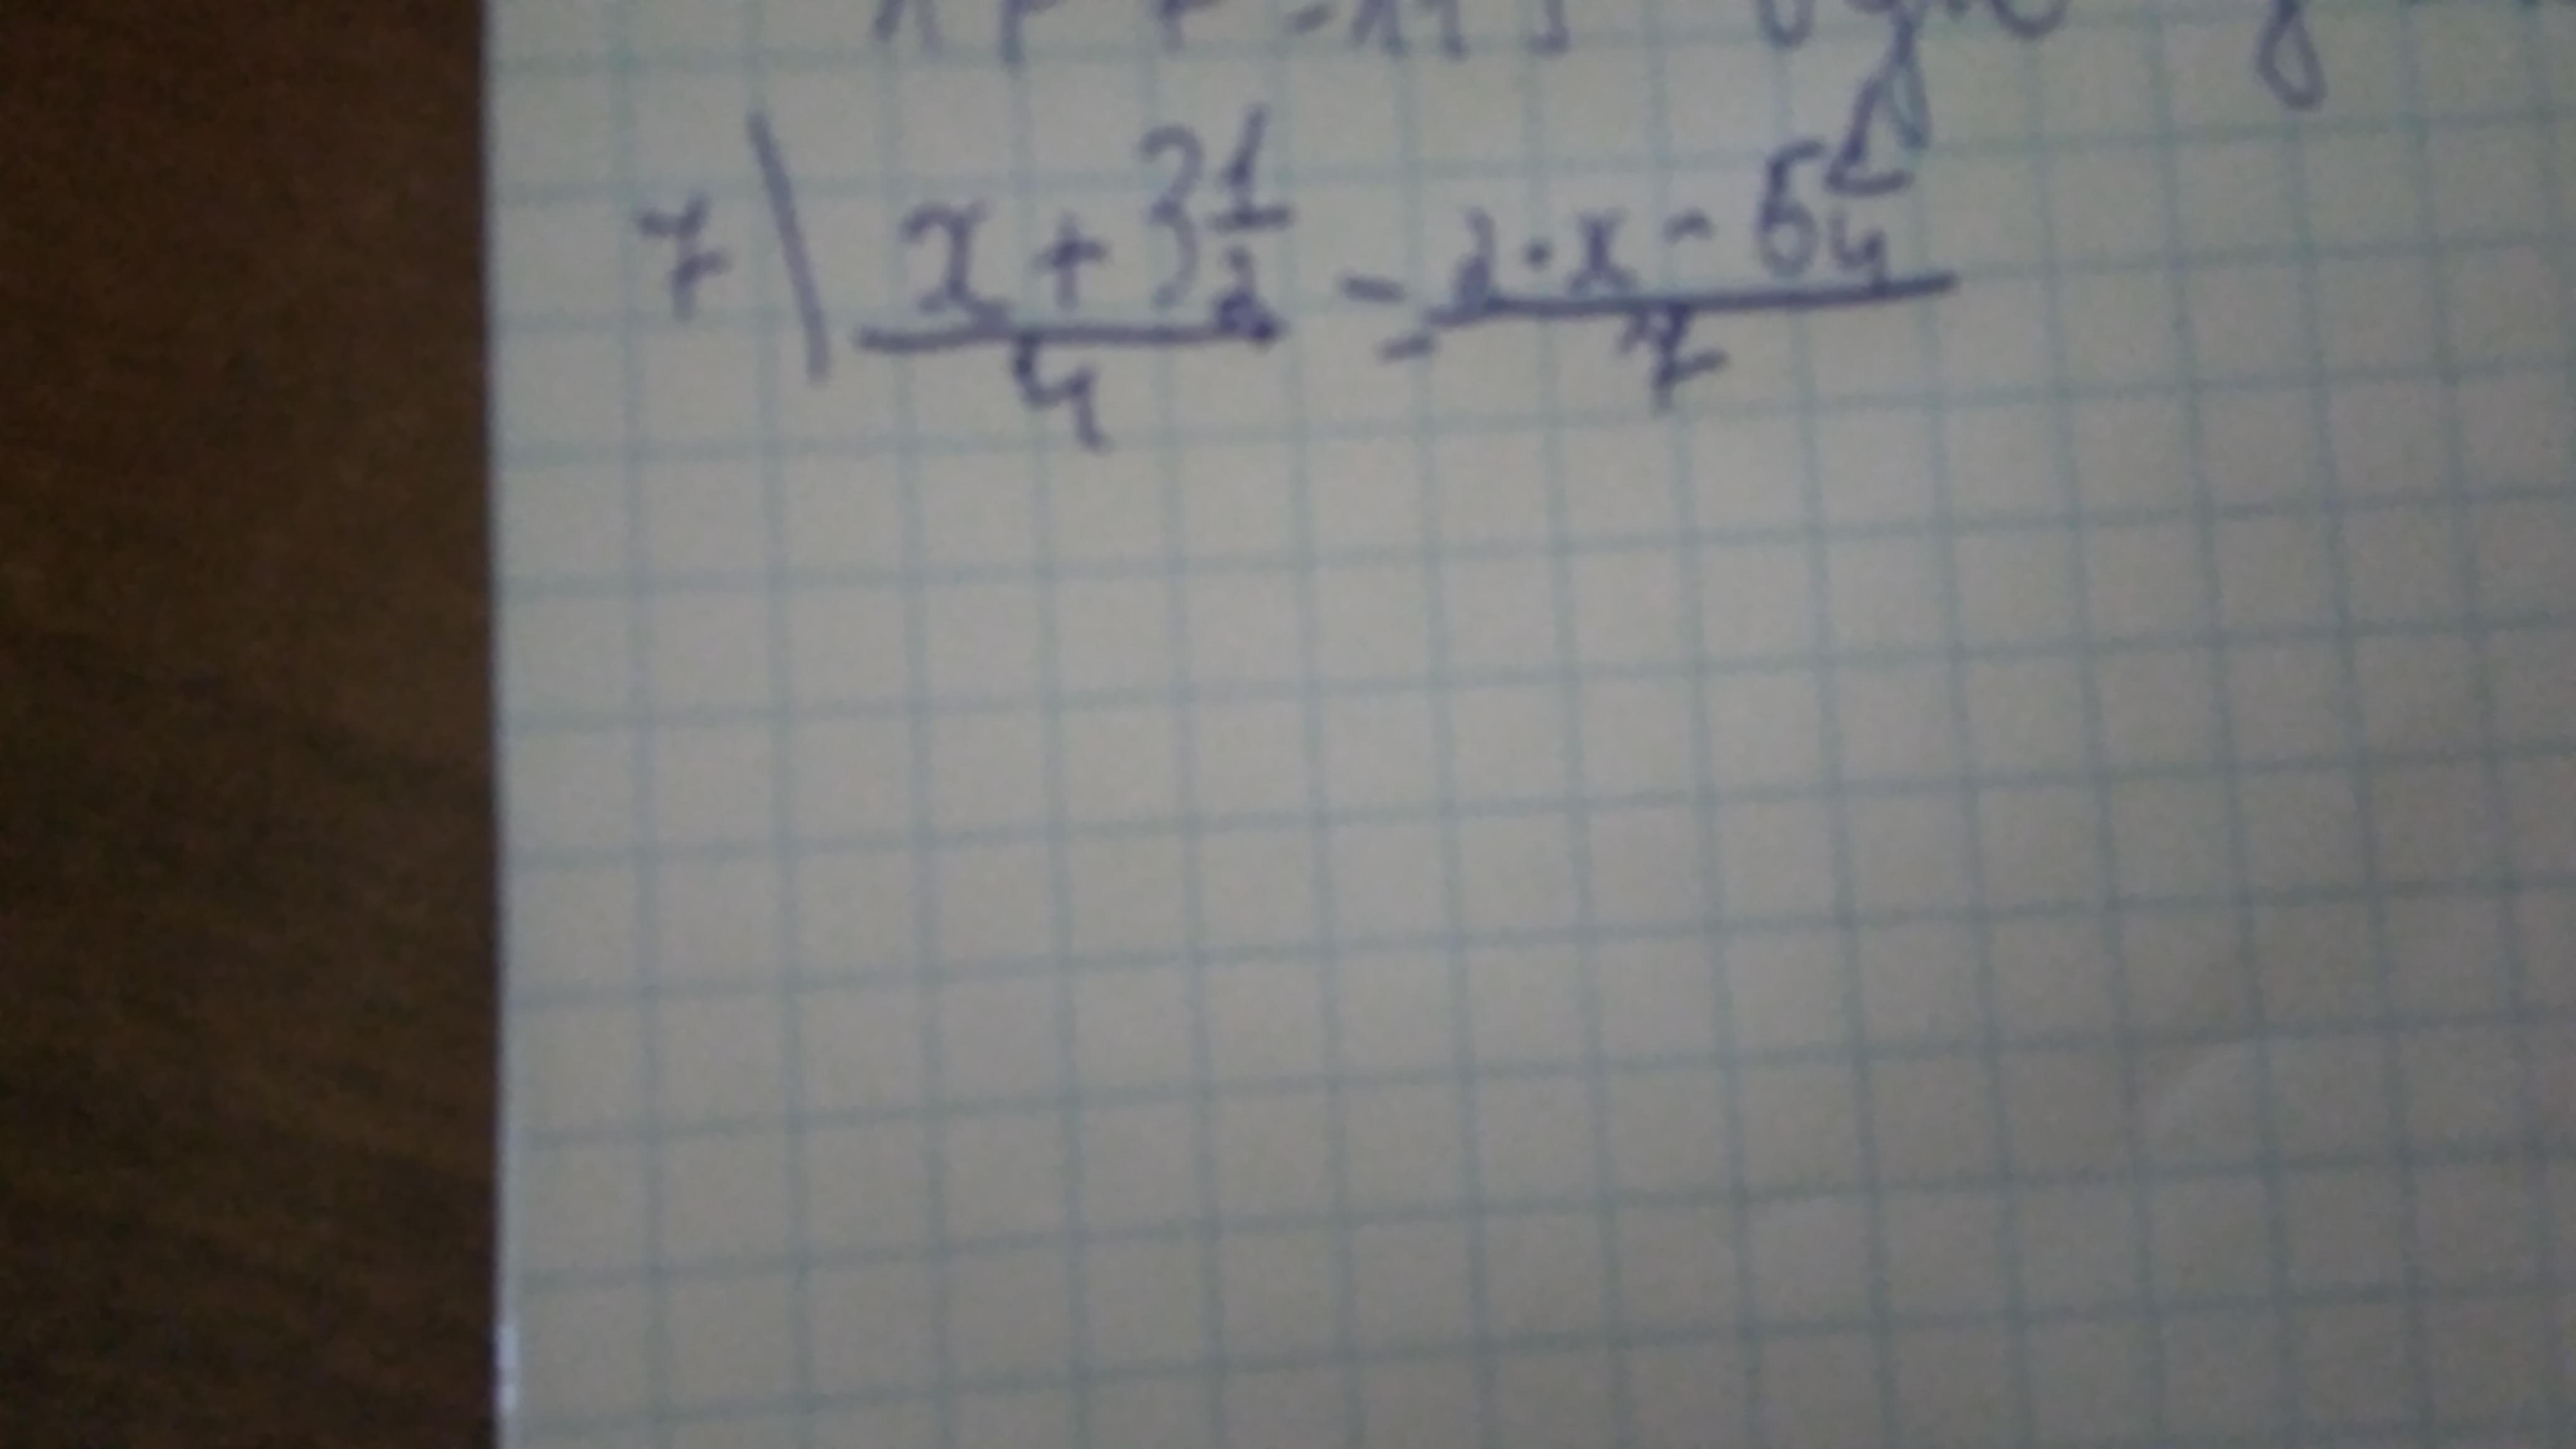 7) (x + 3 1/2)/4 = (2·x - 5 1/4)/7